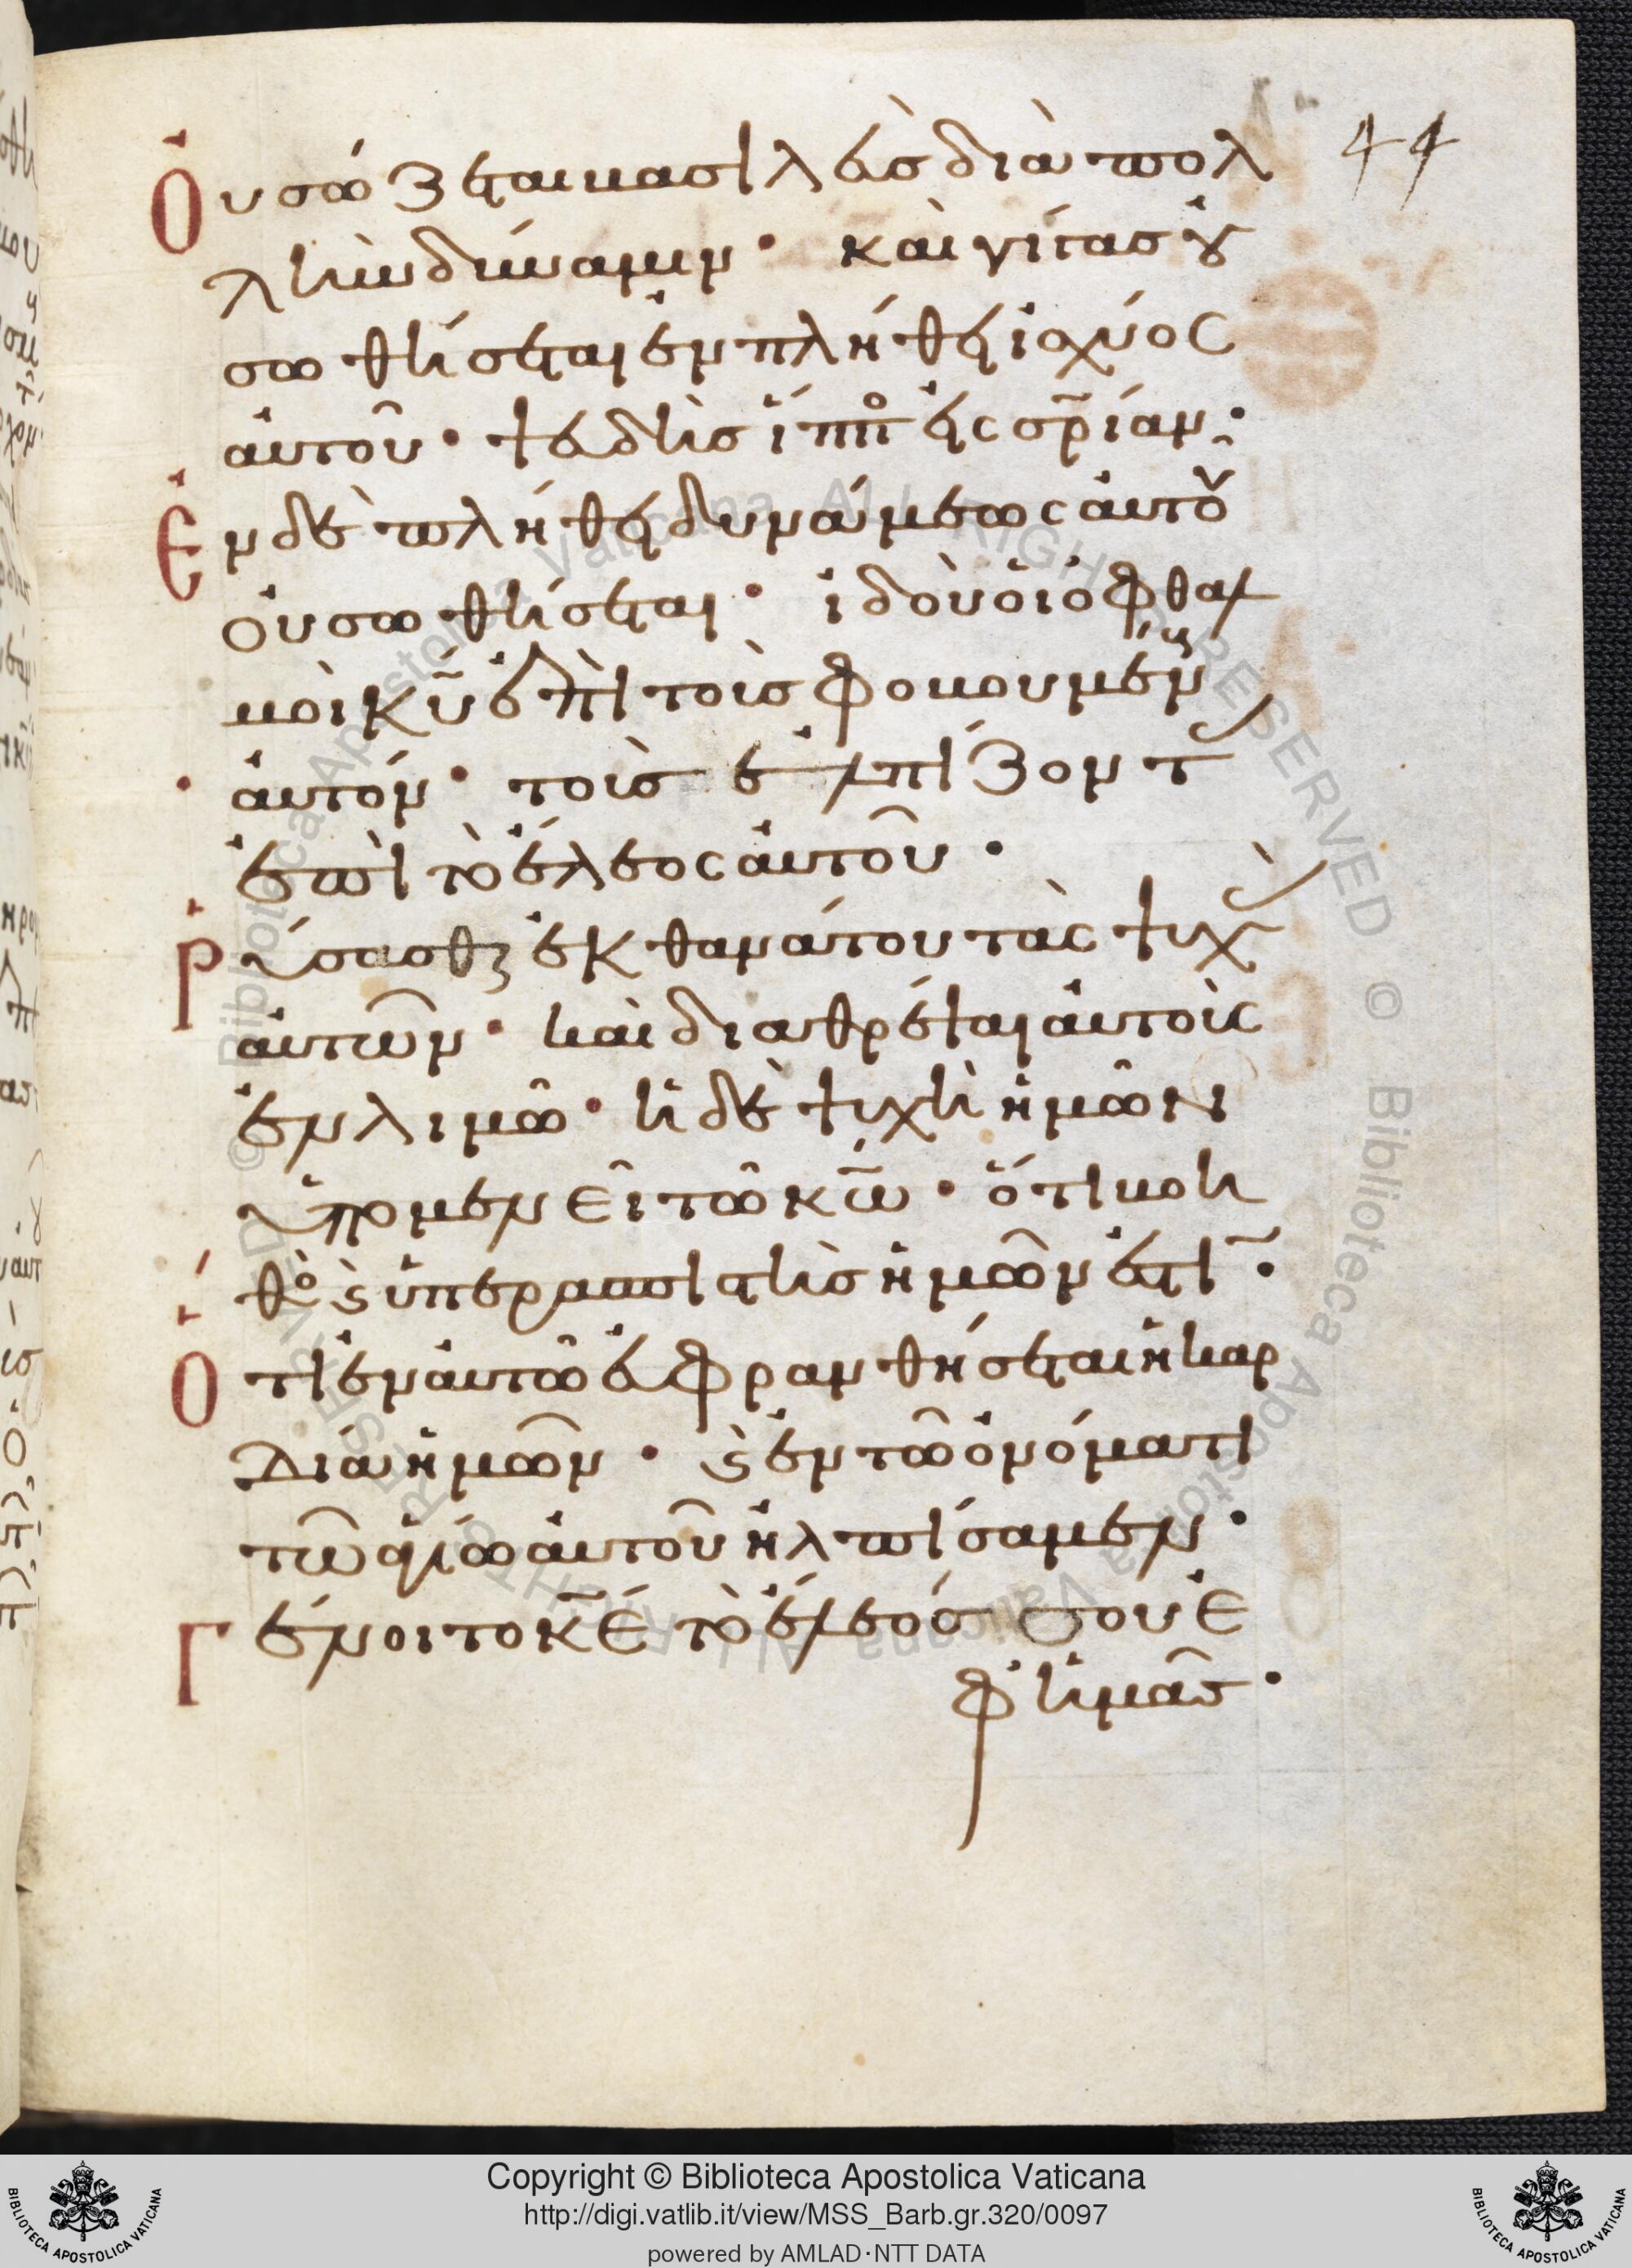 44
Ὀυ σώζεται βασιλεὺσ διὰ πολ
λὴν δύναμιν· καὶ γίγασ οὐ
σωθήσεται ἐν πλήθει ἰσχύος
ἀυτοῦ· ψευδὴσ ἵππος εἰς σρ̅ίαν·
Ἐν δὲ πλήθει δυνάμεως ἀυτοῦ
ὀυ σωθήσεται· ἰδοὺ ὀι ὀφθαλ
μοὶ κ̅υ̅ ἐπὶ τοὺσ φοβουμένους
ἀυτόν· τοὺσ ἐλπίζοντας
ἐπὶ τὸ ἔλεος ἀυτοῦ·
Ῥύσασθαι ἐκ θανάτου τὰς ψυχὰς
ἀυτῶν· καὶ διαθρέψαι ἀυτοὺς
ἐν λιμῶ· ἡ δὲ ψυχὴ ἡμῶν
ὑπομενεῖ τῶ κ̅ω̅· ὅτι βοη
θὸς ϗ ὑπερασπιστὴσ ἡμῶν ἐστὶ·
Ὅτι ἐν ἀυτῶ ἐυφρανθήσεται ἡ καρ
δία ἡμῶν· ϗ ἐν τῶ ὀνόματι
τῶ ἁγίω ἀυτοῦ ἠλπίσαμεν·
Γένοιτο κ̅ε̅ τὸ ἔλεόσ σου ἐ
φ ἡμᾶσ·
Copyright © Biblioteca Apostolica Vaticana
http://digi.vatlib.it/view/MSS_Barb.gr.320/0097
powered by AMLAD·NTT DATA
BIBLIOTECA APOSTOLICA VATICANA
BIBLIOTECA APOSTOLICA VATICANA